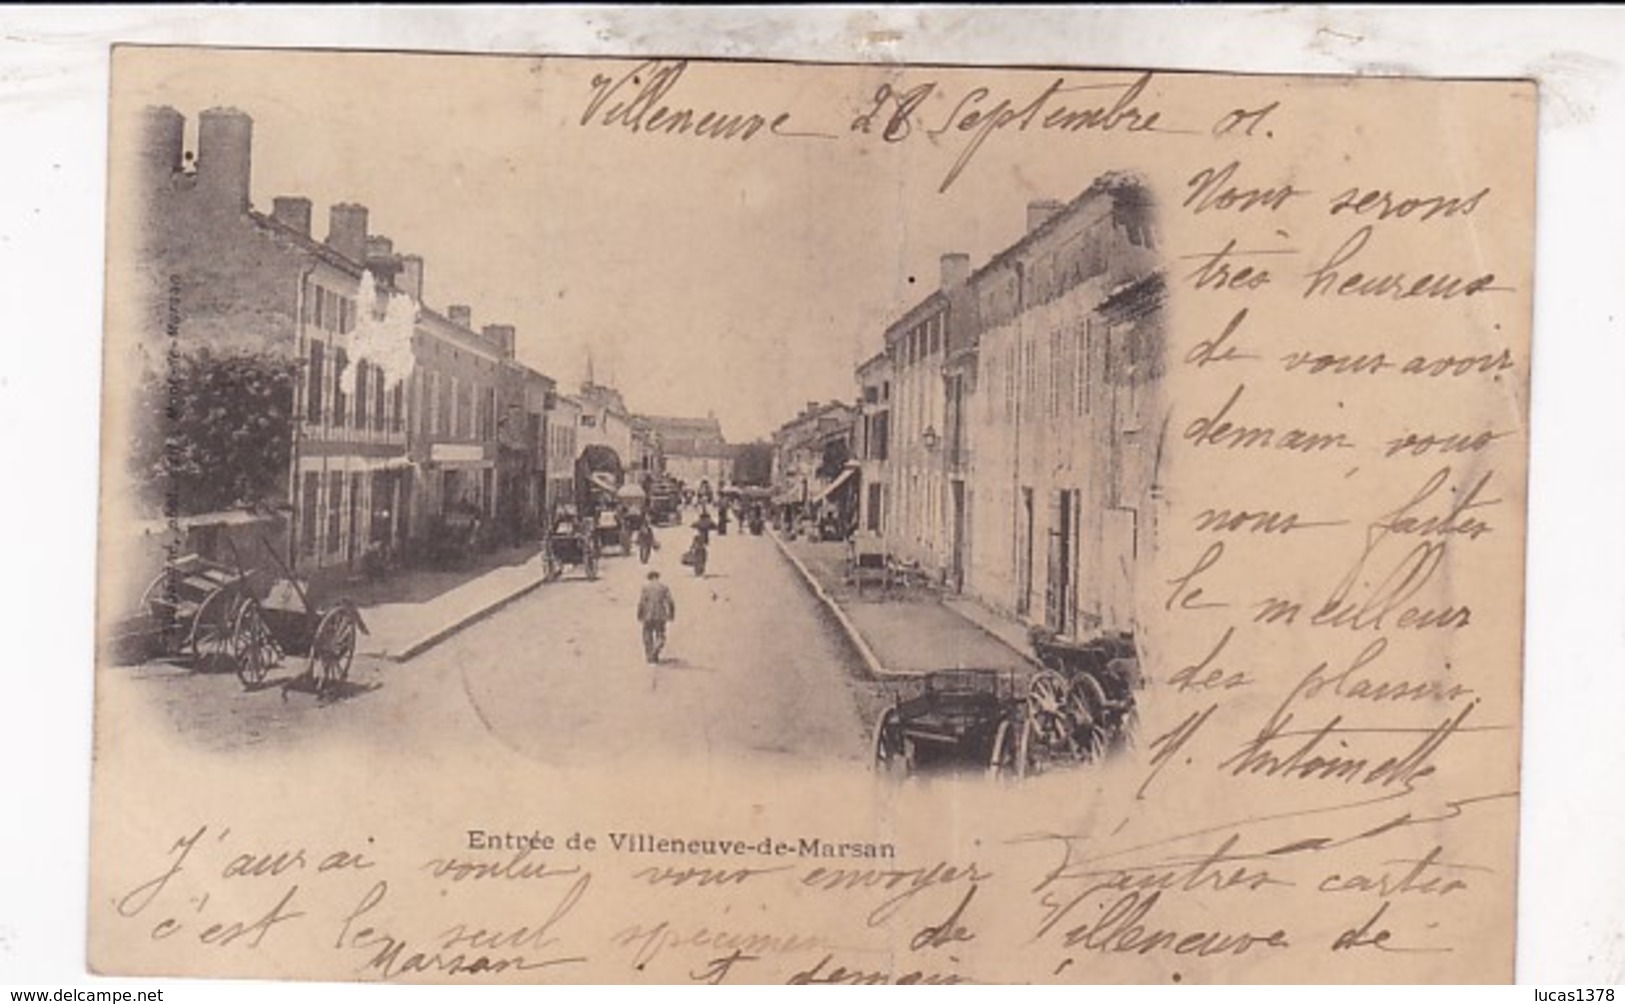 Villeneuve 28 Septembre 01.
Nous serons
très heureux
de vous avoir
demain, vous
nous faites
le meilleur
des plaisirs.
M. Antoinette
Entrée de Villeneuve-de-Marsan
J'aurai voulu vous envoyer d'autres cartes
c'est le seul spécimen de Villeneuve de
Marsan. A demain
delcampe.net
lucas1378